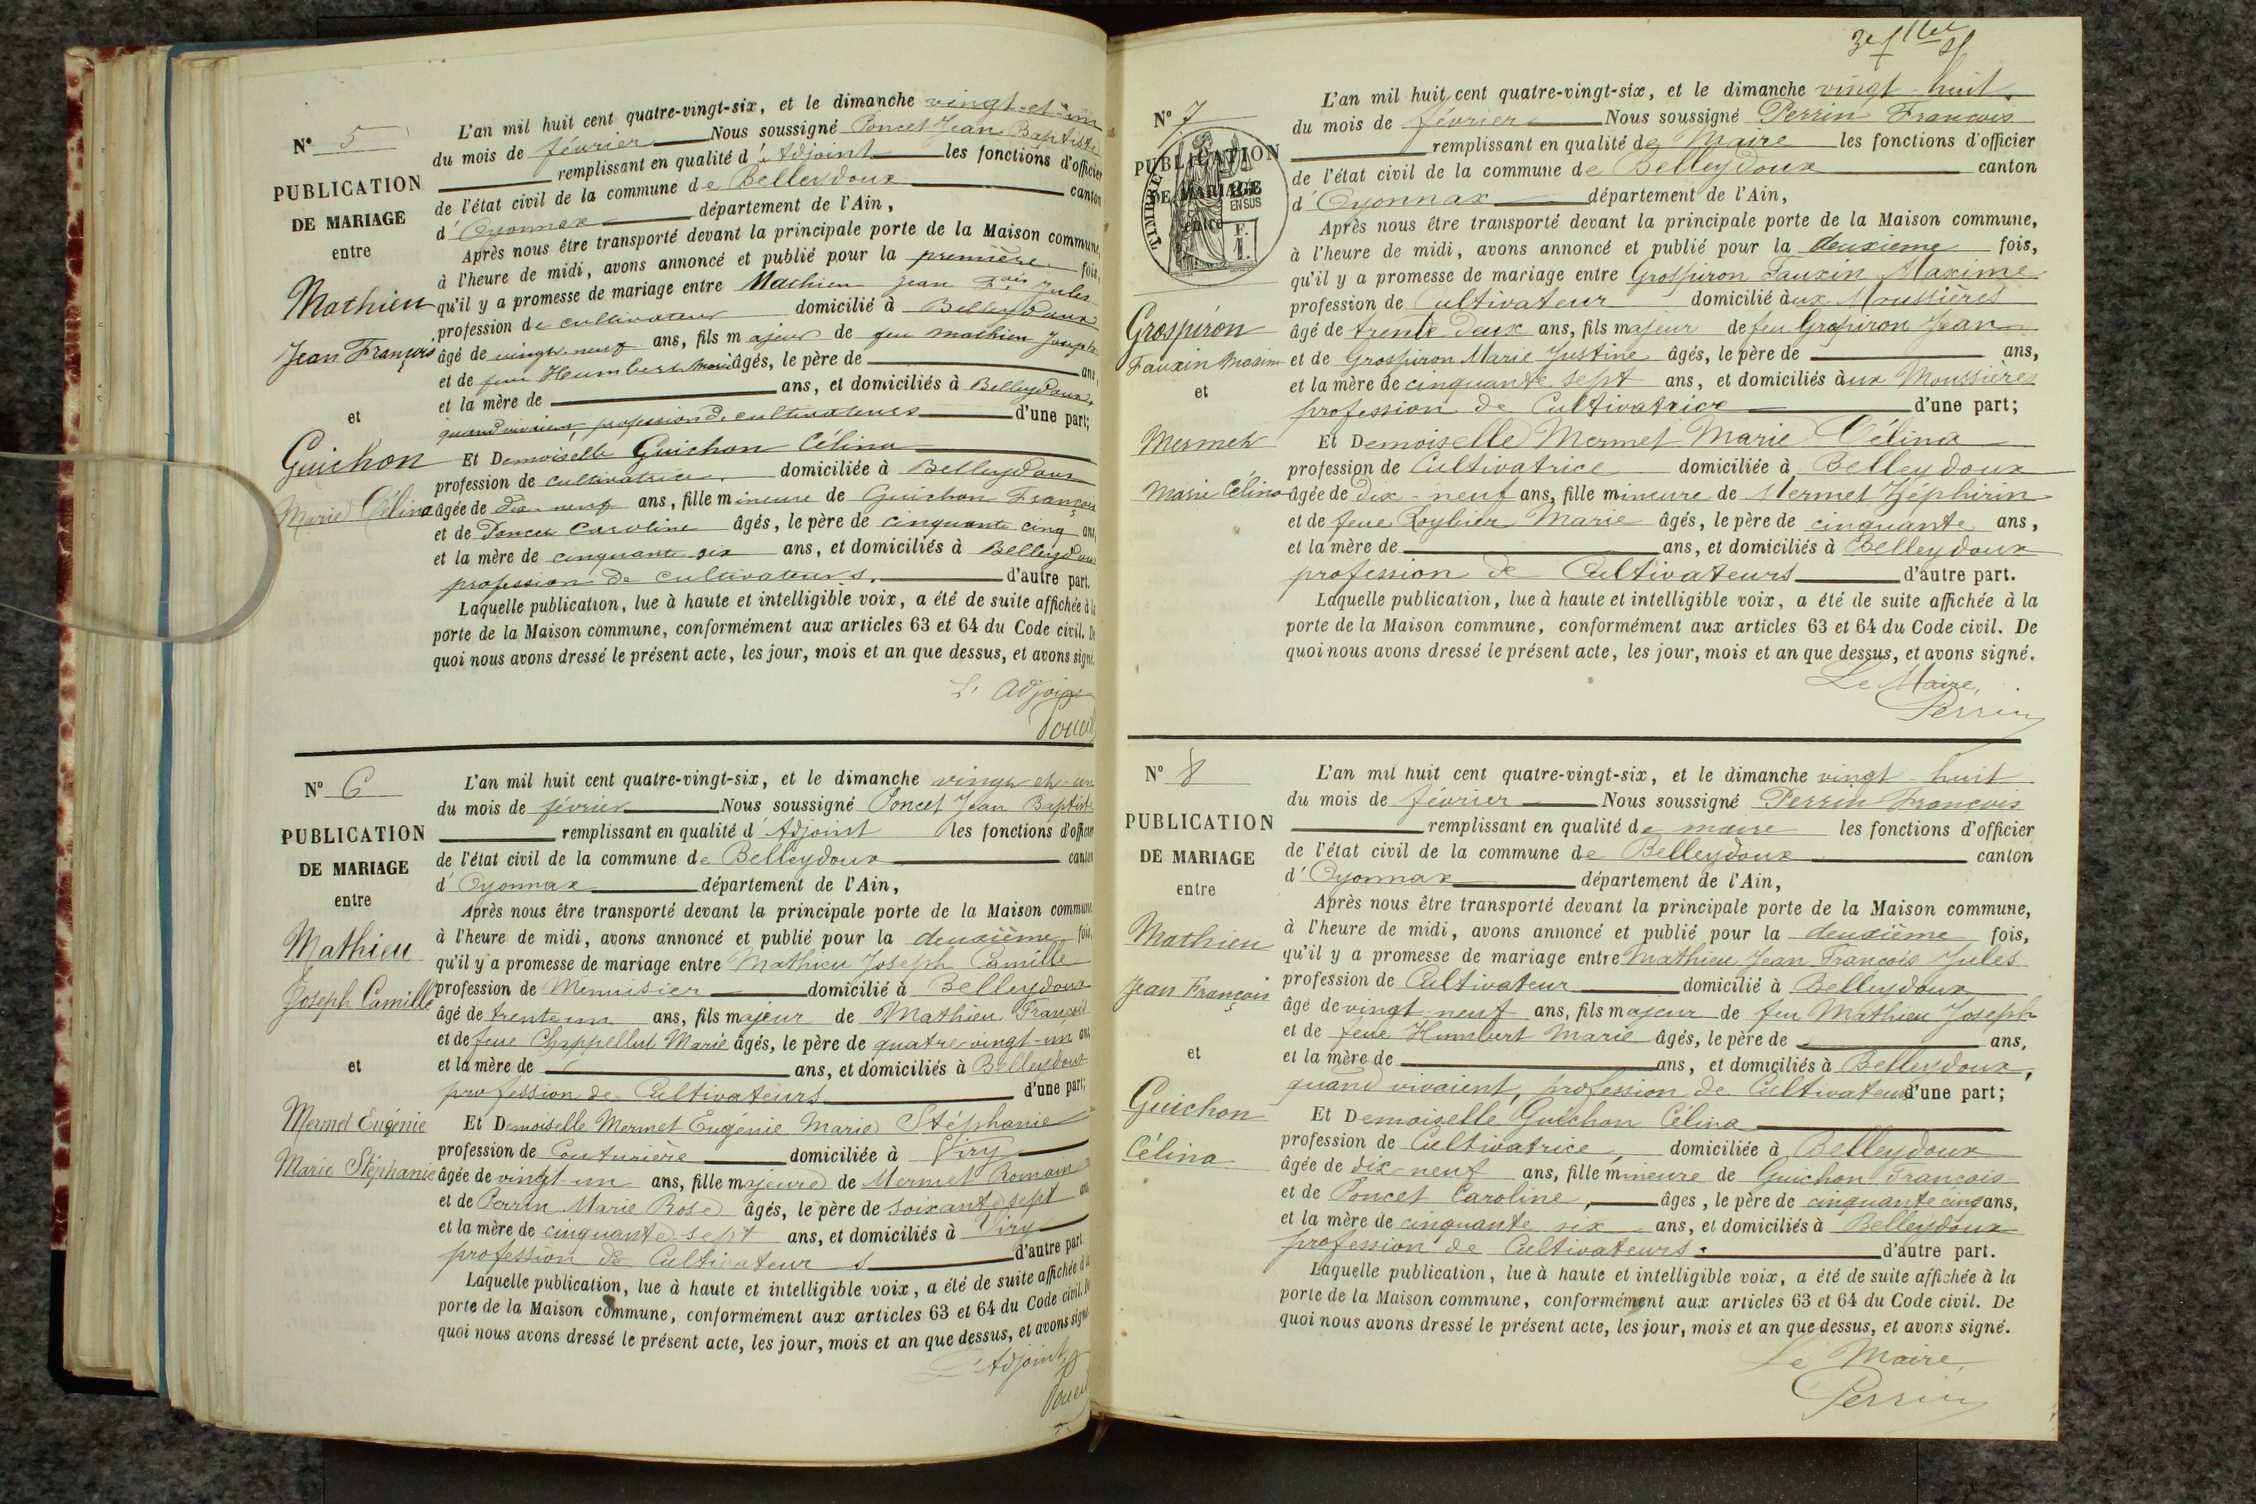 N° 5
PUBLICATION
DE MARIAGE
entre
Mathieu
Jean François
et
Guichon
Marie Célina
L'an mil huit cent quatre-vingt-six, et le dimanche vingt-et-un
du mois de février Nous soussigné Poncet Jean Baptiste
remplissant en qualité d'Adjoint les fonctions d'officier
de l'état civil de la commune de Belleydoux canton
d'Oyonnax département de l'Ain,
Après nous être transporté devant la principale porte de la Maison commune,
à l'heure de midi, avons annoncé et publié pour la première fois,
qu'il y a promesse de mariage entre Mathieu Jean Fçois Jules
profession de cultivateur domicilié à Belleydoux
âgé de vingt-neuf ans, fils majeur de feu Mathieu Joseph
et de feue Humbert Marie âgés, le père de ans,
et la mère de ans, et domiciliés à Belleydoux,
quand vivaient, profession de cultivateurs d'une part;
Et Demoiselle Guichon Célina
profession de cultivatrice domiciliée à Belleydoux
âgée de dix-neuf ans, fille mineure de Guichon François
et de Poncet Caroline âgés, le père de cinquante cinq ans,
et la mère de cinquante six ans, et domiciliés à Belleydoux
profession de cultivateurs. d'autre part.
Laquelle publication, lue à haute et intelligible voix, a été de suite affichée à la
porte de la Maison commune, conformément aux articles 63 et 64 du Code civil. De
quoi nous avons dressé le présent acte, les jour, mois et an que dessus, et avons signé.
L'Adjoint
Poncet
N° 6
PUBLICATION
DE MARIAGE
entre
Mathieu
Joseph Camille
et
Mermet Eugénie
Marie Stéphanie
L'an mil huit cent quatre-vingt-six, et le dimanche vingt-et-un
du mois de février Nous soussigné Poncet Jean Baptist
remplissant en qualité d'Adjoint les fonctions d'officier
de l'état civil de la commune de Belleydoux canton
d'Oyonnax département de l'Ain,
Après nous être transporté devant la principale porte de la Maison commune
à l'heure de midi, avons annoncé et publié pour la deuxième fois,
qu'il y a promesse de mariage entre Mathieu Joseph Camille
profession de Menuisier domicilié à Belleydoux
âgé de trente un ans, fils majeur de Mathieu François
et de feue Chappellut Marie âgés, le père de quatre vingt-un ans,
et la mère de ans, et domiciliés à Belleydoux
profession de Cultivateurs d'une part;
Et Demoiselle Mermet Eugénie Marie Stéphanie
profession de Couturière domiciliée à Viry
âgée de vingt-un ans, fille majeure de Mermet Romain
et de Perrin Marie Rose âgés, le père de soixante sept ans
et la mère de cinquante sept ans, et domiciliés à Viry
profession de Cultivateurs d'autre part
Laquelle publication, lue à haute et intelligible voix, a été de suite affichée à la
porte de la Maison commune, conformément aux articles 63 et 64 du Code civil. De
quoi nous avons dressé le présent acte, les jour, mois et an que dessus, et avons signé
L'Adjoint
Poncet
3e fllet
N° 7
PUBLICATION
DE MARIAGE
entre
TIMBRE
EN SUS
F.
1.
Grospiron
Fauxin Maxim
et
Mermet
Marie Célina
L'an mil huit cent quatre-vingt-six, et le dimanche vingt-huit
du mois de février Nous soussigné Perrin François
remplissant en qualité de Maire les fonctions d'officier
de l'état civil de la commune de Belleydoux canton
d'Oyonnax département de l'Ain,
Après nous être transporté devant la principale porte de la Maison commune,
à l'heure de midi, avons annoncé et publié pour la deuxième fois,
qu'il y a promesse de mariage entre Grospiron Fauxin Maxime
profession de Cultivateur domicilié aux Moussières
âgé de trente deux ans, fils majeur de feu Grospiron Jean
et de Grospiron Marie Justine âgés, le père de ans,
et la mère de cinquante sept ans, et domiciliés àux Moussières
profession de Cultivatrice d'une part;
Et Demoiselle Mermet Marie Célina
profession de Cultivatrice domiciliée à Belleydoux
âgée de dix-neuf ans, fille mineure de Mermet Zéphirin
et de feue Roybier Marie âgés, le père de cinquante ans,
et la mère de ans, et domiciliés à Belleydoux
profession de Cultivateurs d'autre part.
Laquelle publication, lue à haute et intelligible voix, a été de suite affichée à la
porte de la Maison commune, conformément aux articles 63 et 64 du Code civil. De
quoi nous avons dressé le présent acte, les jour, mois et an que dessus, et avons signé.
Le Maire,
Perrin
N° 8
PUBLICATION
DE MARIAGE
entre
Mathieu
Jean François
et
Guichon
Célina
L'an mil huit cent quatre-vingt-six, et le dimanche vingt-huit
du mois de février Nous soussigné Perrin François
remplissant en qualité de maire les fonctions d'officier
de l'état civil de la commune de Belleydoux canton
d'Oyonnax département de l'Ain,
Après nous être transporté devant la principale porte de la Maison commune,
à l'heure de midi, avons annoncé et publié pour la deuxième fois,
qu'il y a promesse de mariage entre Mathieu Jean François Jules
profession de Cultivateur domicilié à Belleydoux
âgé de vingt neuf ans, fils majeur de feu Mathieu Joseph
et de feue Humbert Marie âgés, le père de ans,
et la mère de ans, et domiciliés à Belleydoux,
quand vivaient, profession de Cultivateurs d'une part;
Et Demoiselle Guichon Célina
profession de Cultivatrice, domiciliée à Belleydoux
âgée de dix-neuf ans, fille mineure de Guichon François
et de Poncet Caroline, âgés, le père de cinquante cinq ans,
et la mère de cinquante six ans, et domiciliés à Belleydoux
profession de Cultivateurs. d'autre part.
Laquelle publication, lue à haute et intelligible voix, a été de suite affichée à la
porte de la Maison commune, conformément aux articles 63 et 64 du Code civil. De
quoi nous avons dressé le présent acte, les jour, mois et an que dessus, et avons signé.
Le Maire,
Perrin